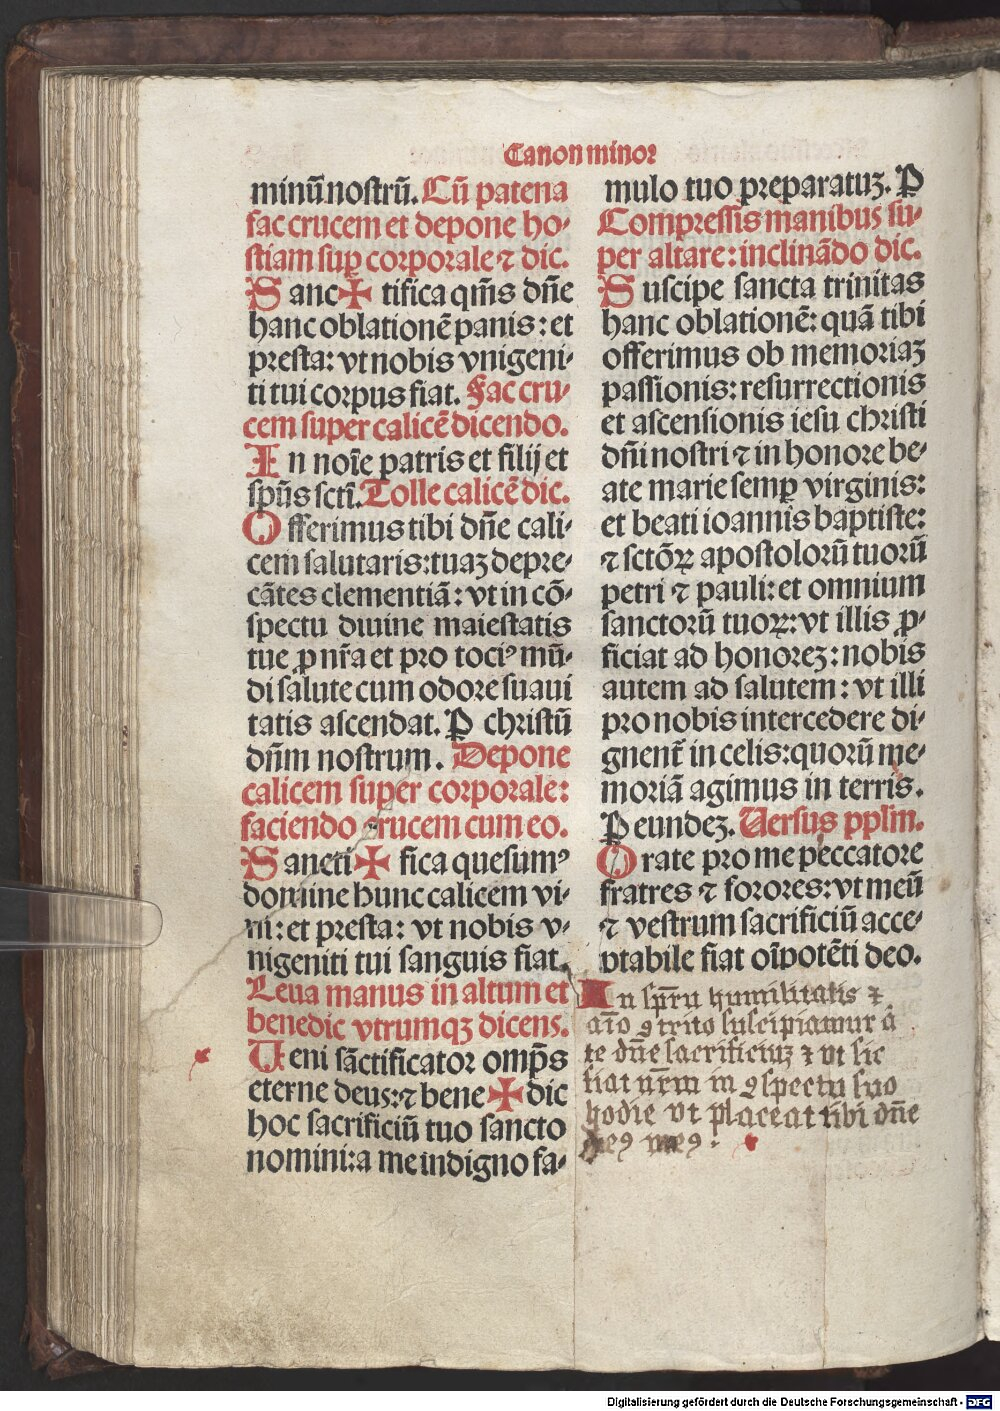 Canon minor
minū nostrū. Cū patena
fac crucem et depone ho-
stiam suꝑ corporale ⁊ dic.
Sanc✠tifica qm̄s dn̄e
hanc oblationē panis: et
presta: vt nobis vnigeni-
ti tui corpus fiat. Fac cru-
cem super calicē dicendo.
In noīe patris et filij et
spūs sctī. Tolle calicē dic.
Offerimus tibi dn̄e cali-
cem salutaris: tuaꝫ depre-
cātes clementiā: vt in cō-
spectu diuine maiestatis
tue ꝓ nr̄a et pro tociꝰ mū-
di salute cum odore suaui
tatis ascendat. P christū
dn̄m nostrum. Depone
calicem super corporale:
faciendo crucem cum eo.
Sancti✠fica quesumꝰ
domine hunc calicem vi-
ni: et presta: vt nobis v-
nigeniti tui sanguis fiat.
Leua manus in altum et
benedic vtrumqꝫ dicens.
Ueni sāctificator omp̄s
eterne deus: ⁊ bene✠dic
hoc sacrificiū tuo sancto
nomini: a me indigno fa-
mulo tuo preparatuꝫ. P
Compressis manibus su-
per altare: inclināndo dic.
Suscipe sancta trinitas
hanc oblationē: quā tibi
offerimus ob memoriaꝫ
passionis: resurrectionis
et ascensionis iesu christi
dn̄i nostri ⁊ in honore be-
ate marie semꝑ virginis:
et beati ioannis baptiste:
⁊ sctōꝝ apostolorū tuorū
petri ⁊ pauli: et omnium
sanctorū tuoꝝ: vt illis ꝓ-
ficiat ad honoreꝫ: nobis
autem ad salutem: vt illi
pro nobis intercedere di-
gnent̄ in celis: quorū me-
moriā agimus in terris.
P eundeꝫ. Uersus pplm.
Orate pro me peccatore
fratres ⁊ sorores: vt meū
⁊ vestrum sacrificiū acce-
ptabile fiat oīpotēti deo.
In spr̄u humilitatis ⁊
aīo ꝯtrito suscipiamur a
te dn̄e sacrificiuꝫ ⁊ vt sic
fiat nr̄m in ꝯspectu suo
hodie vt placeat tibi dn̄e
deꝰ meꝰ.
Digitalisierung gefördert durch die Deutsche Forschungsgemeinschaft - DFG